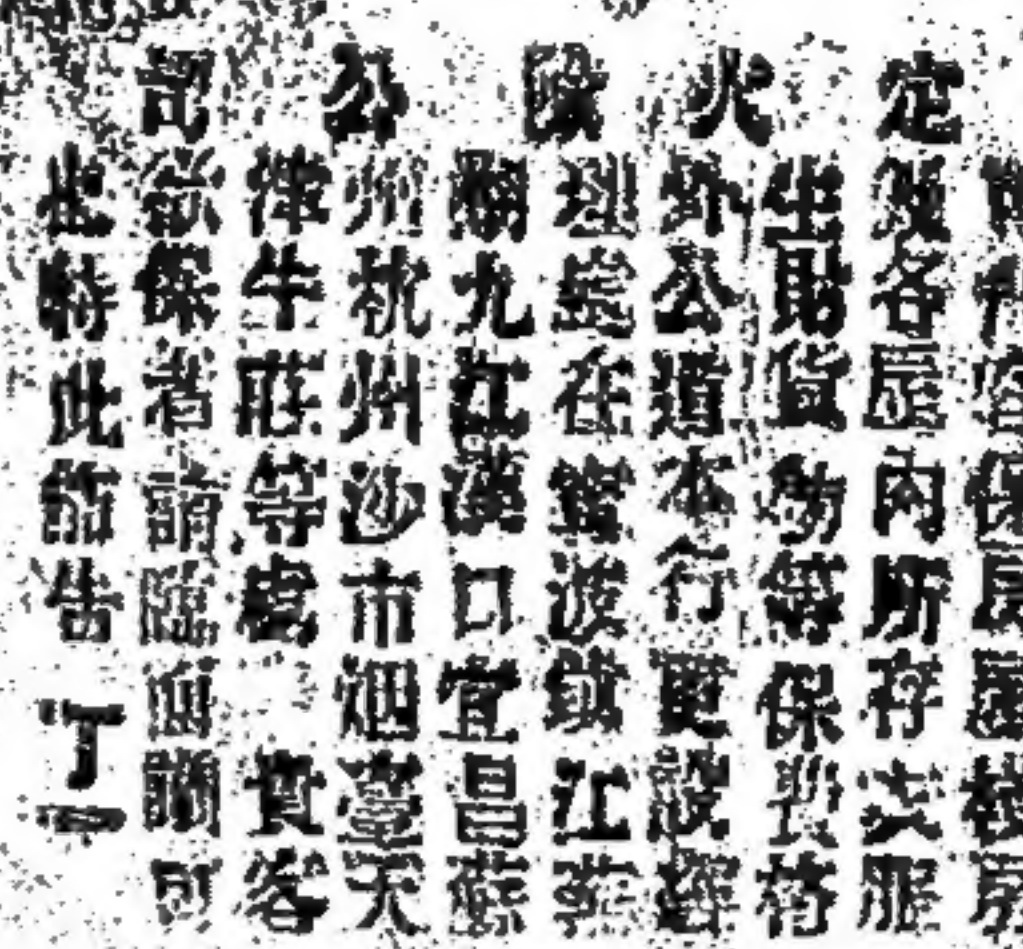 定火險公司
客保房屋棧房
及各屋內所存衣服
生財貨物等保費格
外公道本行更設經
理處在寧波鎮江蕪
湖九江漢口宜昌蘇
州杭州沙市烟臺天
津牛庄等處 貴客
欲保者請臨面議可
也特此佈告 丁一